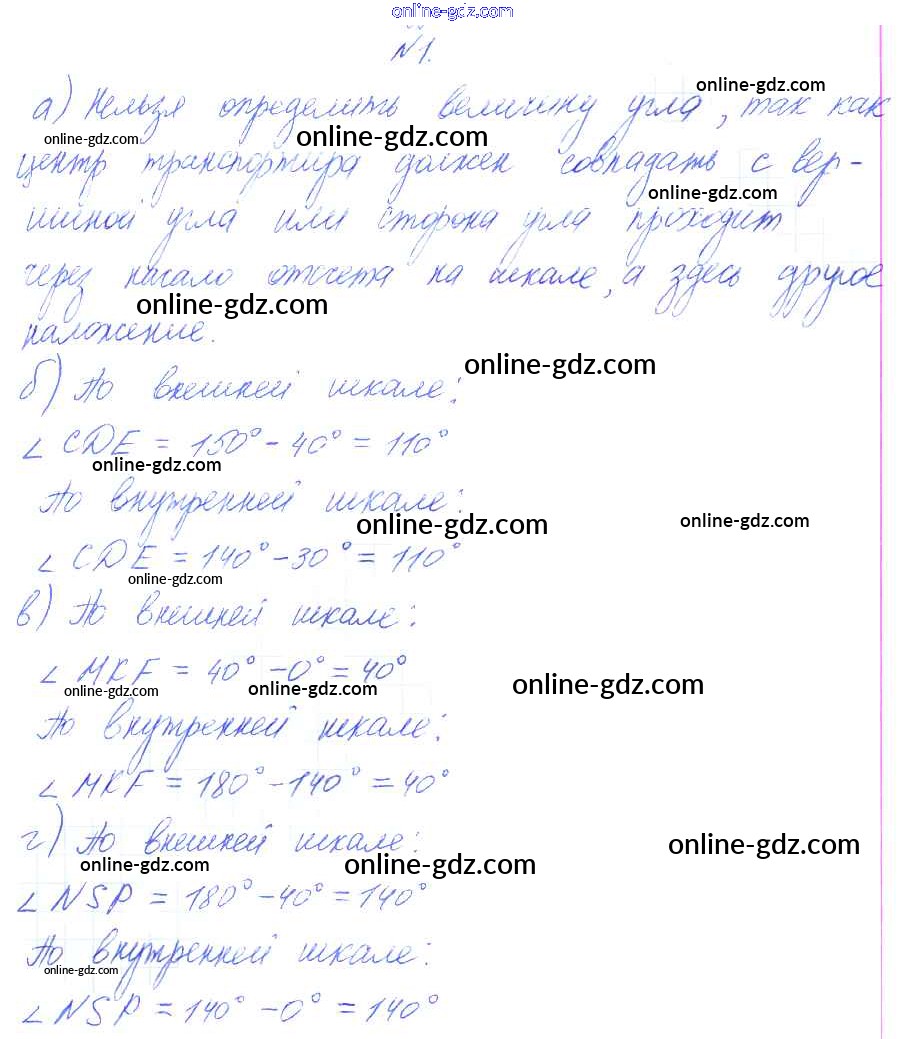 online-gdz.com
№1.
online-gdz.com
а) Нельзя определить величину угла, так как
online-gdz.com online-gdz.com
центр транспортира должен совпадать с вер-
online-gdz.com
шиной угла или сторона угла проходит
через начало отсчета на шкале, а здесь другое
online-gdz.com
положение.
online-gdz.com
б) По внешней шкале:
∠ CDE = 150° - 40° = 110°
online-gdz.com
По внутренней шкале:
online-gdz.com online-gdz.com
∠ CDE = 140° - 30° = 110°
online-gdz.com
в) По внешней шкале:
∠ MKF = 40° - 0° = 40°
online-gdz.com online-gdz.com online-gdz.com
По внутренней шкале:
∠ MKF = 180° - 140° = 40°
г) По внешней шкале:
online-gdz.com online-gdz.com online-gdz.com
∠ NSP = 180° - 40° = 140°
По внутренней шкале:
online-gdz.com
∠ NSP = 140° - 0° = 140°